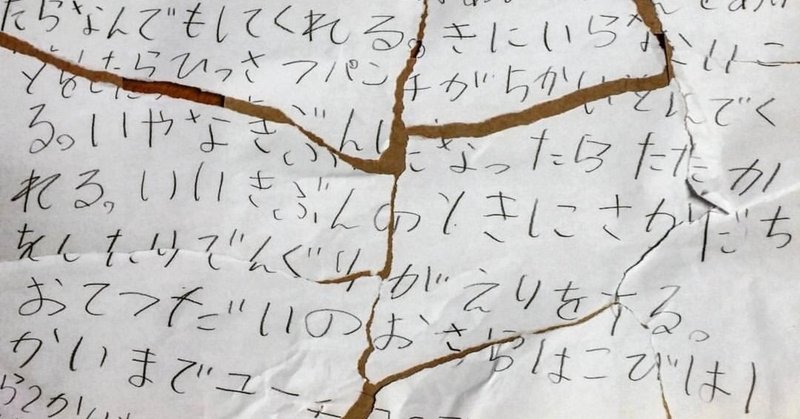 たらなんでもしてくれる。きにいらないこ
とをしたらひっさつパンチがちかいとんでく
る。いやなきぶんになったらたたか
れる。いいきぶんのときにさかだち
をしたりでんぐりがえりをする。
おてつだいのおさらはこびは1
かいまでユー